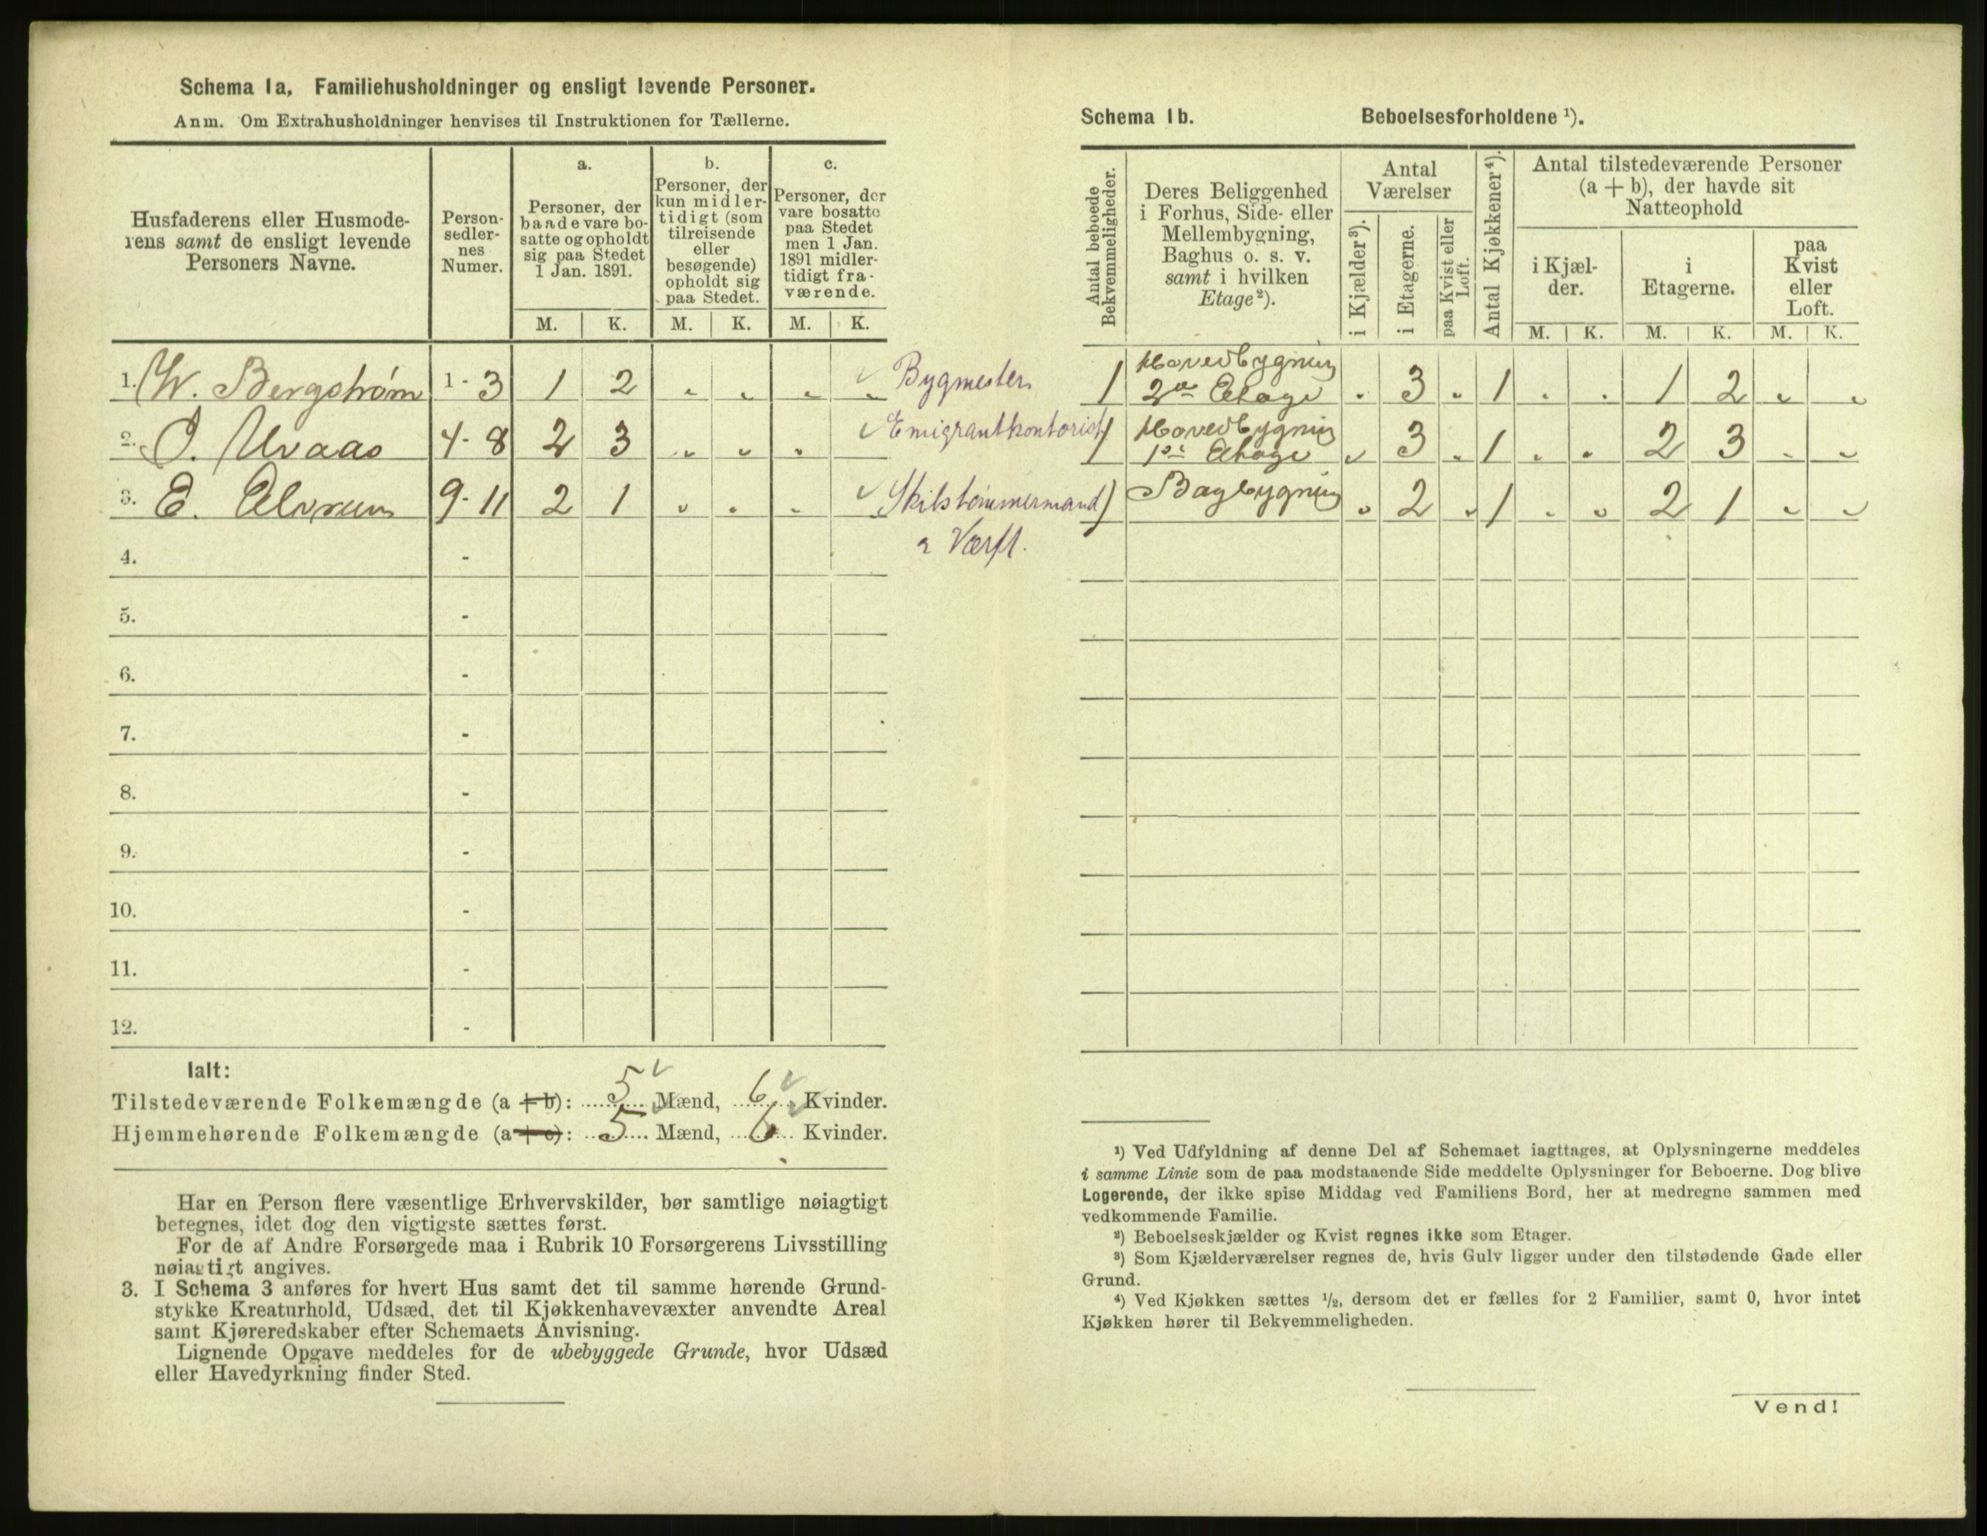 Schema 1a, Familiehusholdninger og ensligt levende Personer.
Anm. Om Extrahusholdninger henvises til Instruktionen for Tællerne.
Husfaderens eller Husmode-
rens samt de ensligt levende
Personers Navne.
Person-
sedler-
nes
Numer.
a.
Personer, der
baade vare bo-
satte og opholdt
sig paa Stedet
1 Jan. 1891.
b.
Personer, der
kun midler-
tidigt (som
tilreisende
eller
besøgende)
opholdt sig
paa Stedet.
c.
Personer, der
vare bosatte
paa Stedet
men 1 Jan.
1891 midler-
tidigt fra-
værende.
M. K. M. K. M. K.
1. W. Bergstrøm 1-3 1 2 " " " " Bygmester
2. O. Uvaas 4-8 2 3 " " " Emigrantkontorist
3. E. 9-11 2 1 " " " Skibstømmermand
a Værft.
4. -
5. -
6. -
7. -
8. -
9. -
10. -
11. -
12. -
Ialt:
Tilstedeværende Folkemængde (a + b): 5 Mænd, 6 Kvinder.
Hjemmehørende Folkemængde (a + c): 5 Mænd, 6 Kvinder.
Har en Person flere væsentlige Erhvervskilder, bør samtlige nøiagtigt
betegnes, idet dog den vigtigste sættes først.
For de af Andre Forsørgede maa i Rubrik 10 Forsørgerens Livsstilling
nøiagtigt angives.
3. I Schema 3 anføres for hvert Hus samt det til samme hørende Grund-
stykke Kreaturhold, Udsæd, det til Kjøkkenhavevæxter anvendte Areal
samt Kjøreredskaber efter Schemaets Anvisning.
Lignende Opgave meddeles for de ubebyggede Grunde, hvor Udsæd
eller Havedyrkning finder Sted.
Schema 1b. Beboelsesforholdene ¹).
Antal beboede
Bekvemmeligheder.
Deres Beliggenhed
i Forhus, Side- eller
Mellembygning,
Baghus o. s. v.
samt i hvilken
Etage²).
Antal
Værelser
i Kjælder³).
i Etagerne.
paa Kvist eller
Loft.
Antal Kjøkkener⁴).
Antal tilstedeværende Personer
(a + b), der havde sit
Natteophold
i Kjæl-
der.
i
Etagerne.
paa
Kvist
eller
Loft.
M. K. M. K. M. K.
1 Hovedbygning
2den Etage " 3 " 1 " " 1 2 " "
1 Hovedbygning
1ste Etage " 3 " 1 " " 2 3 " "
1 Bagbygning " 2 " 1 " " 2 1 " "
¹) Ved Udfyldning af denne Del af Schemaet iagttages, at Oplysningerne meddeles
i samme Linie som de paa modstaaende Side meddelte Oplysninger for Beboerne. Dog blive
Logerende, der ikke spise Middag ved Familiens Bord, her at medregne sammen med
vedkommende Familie.
²) Beboelseskjælder og Kvist regnes ikke som Etager.
³) Som Kjælderværelser regnes de, hvis Gulv ligger under den tilstødende Gade eller
Grund.
⁴) Ved Kjøkken sættes ¹/₂, dersom det er fælles for 2 Familier, samt 0, hvor intet
Kjøkken hører til Bekvemmeligheden.
Vend!